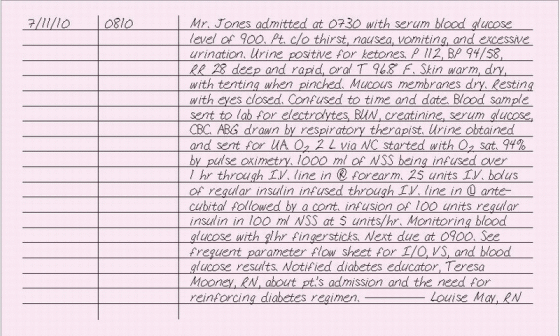 7/11/10 0810 Mr. Jones admitted at 0730 with serum blood glucose
level of 900. Pt. c/o thirst, nausea, vomiting, and excessive
urination. Urine positive for ketones. P 112, BP 94/58,
RR 28 deep and rapid, oral T 96.8° F. Skin warm, dry,
with tenting when pinched. Mucous membranes dry. Resting
with eyes closed. Confused to time and date. Blood sample
sent to lab for electrolytes, BUN, creatinine, serum glucose,
CBC. ABG drawn by respiratory therapist. Urine obtained
and sent for UA. O₂ 2 L via NC started with O₂ sat. 94%
by pulse oximetry. 1000 ml of NSS being infused over
1 hr through I.V. line in Ⓡ forearm. 25 units I.V. bolus
of regular insulin infused through I.V. line in Ⓛ ante-
cubital followed by a cont. infusion of 100 units regular
insulin in 100 ml NSS at 5 units/hr. Monitoring blood
glucose with q1hr fingersticks. Next due at 0900. See
frequent parameter flow sheet for I/O, VS, and blood
glucose results. Notified diabetes educator, Teresa
Mooney, RN, about pt.'s admission and the need for
reinforcing diabetes regimen. ———— Louise May, RN